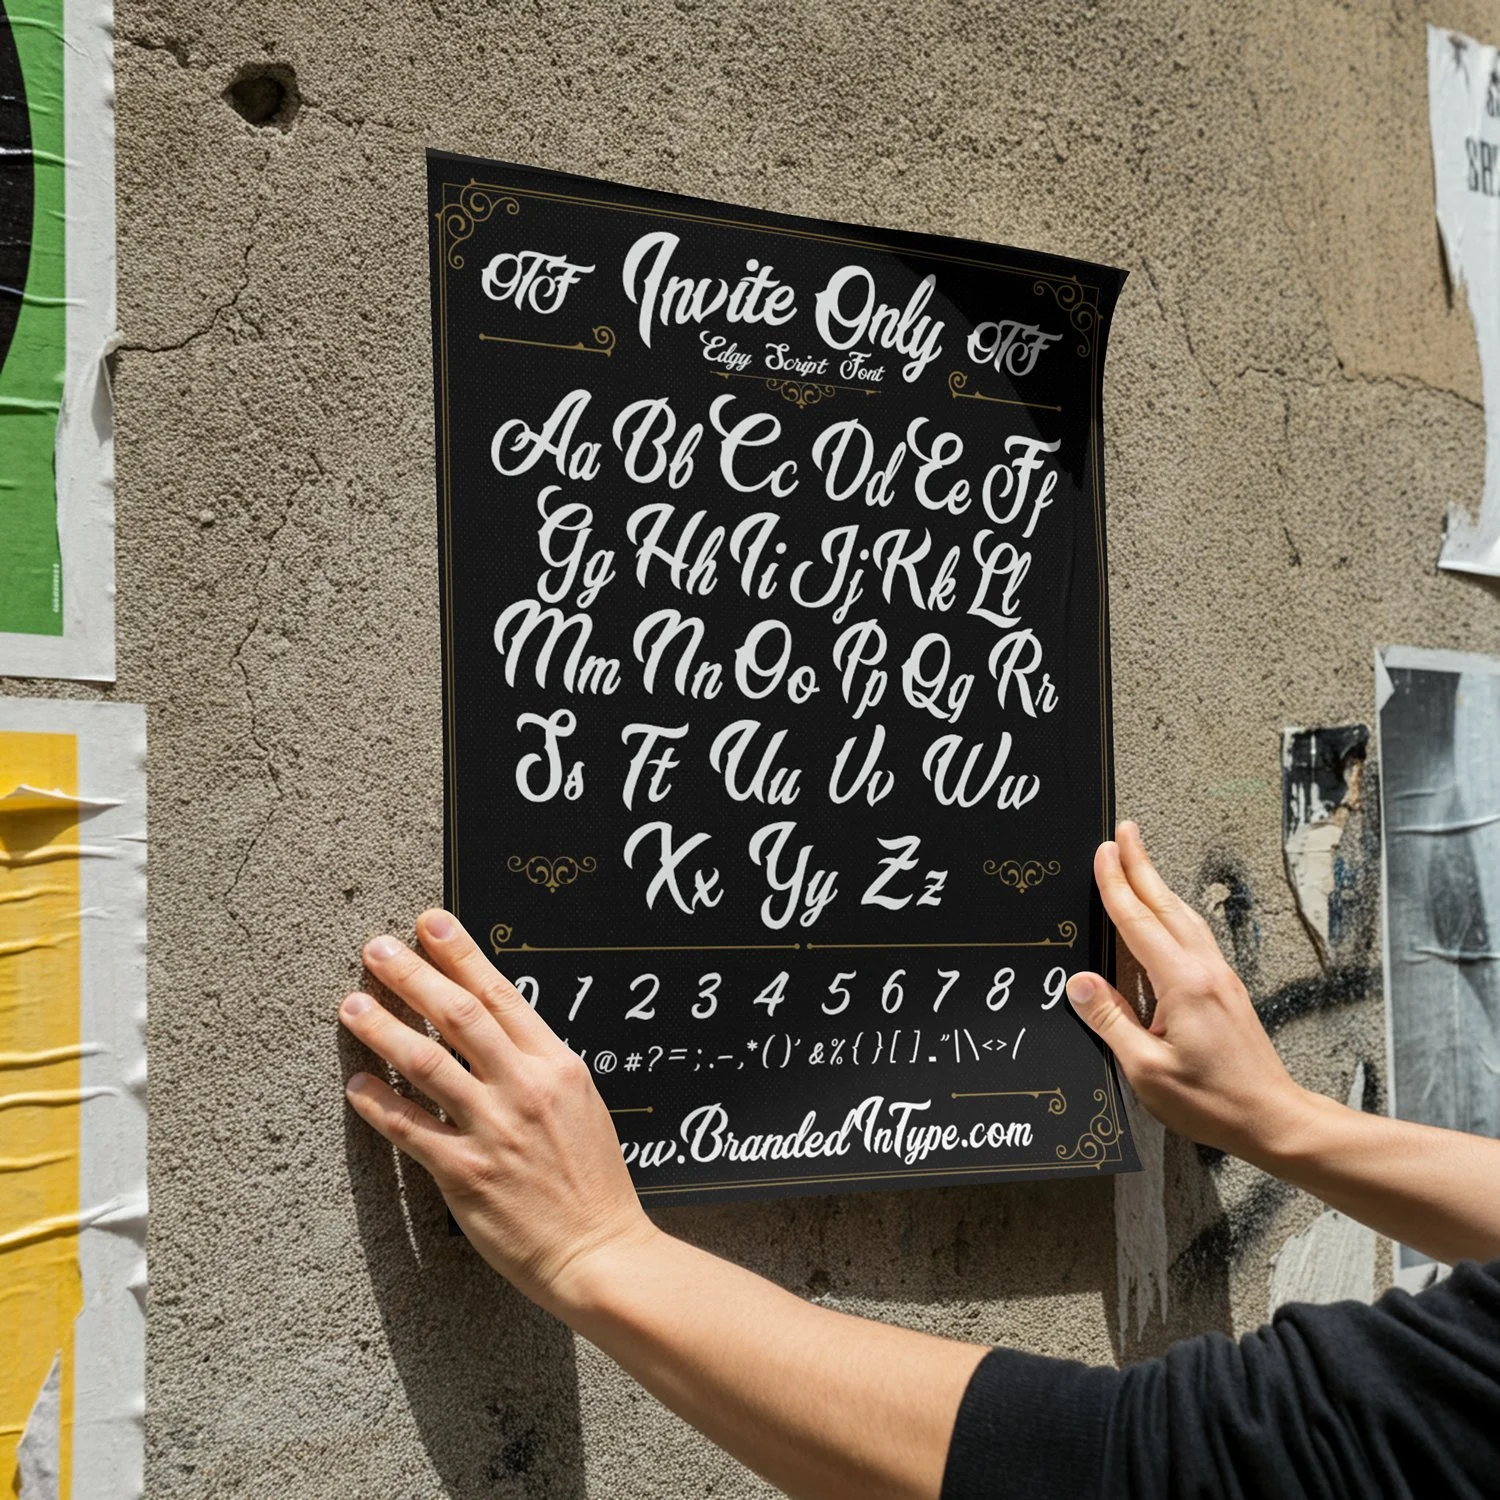 OTF Invite Only OTF
Edgy Script Font
Aa Bb Cc Dd Ee Ff
Gg Hh Ii Jj Kk Ll
Mm Nn Oo Pp Qq Rr
Ss Tt Uu Vv Ww
Xx Yy Zz
0 1 2 3 4 5 6 7 8 9
! @ # ? = ; . – , * ( ) ' & % { } [ ] . " | \ < > /
ww.BrandedInType.com